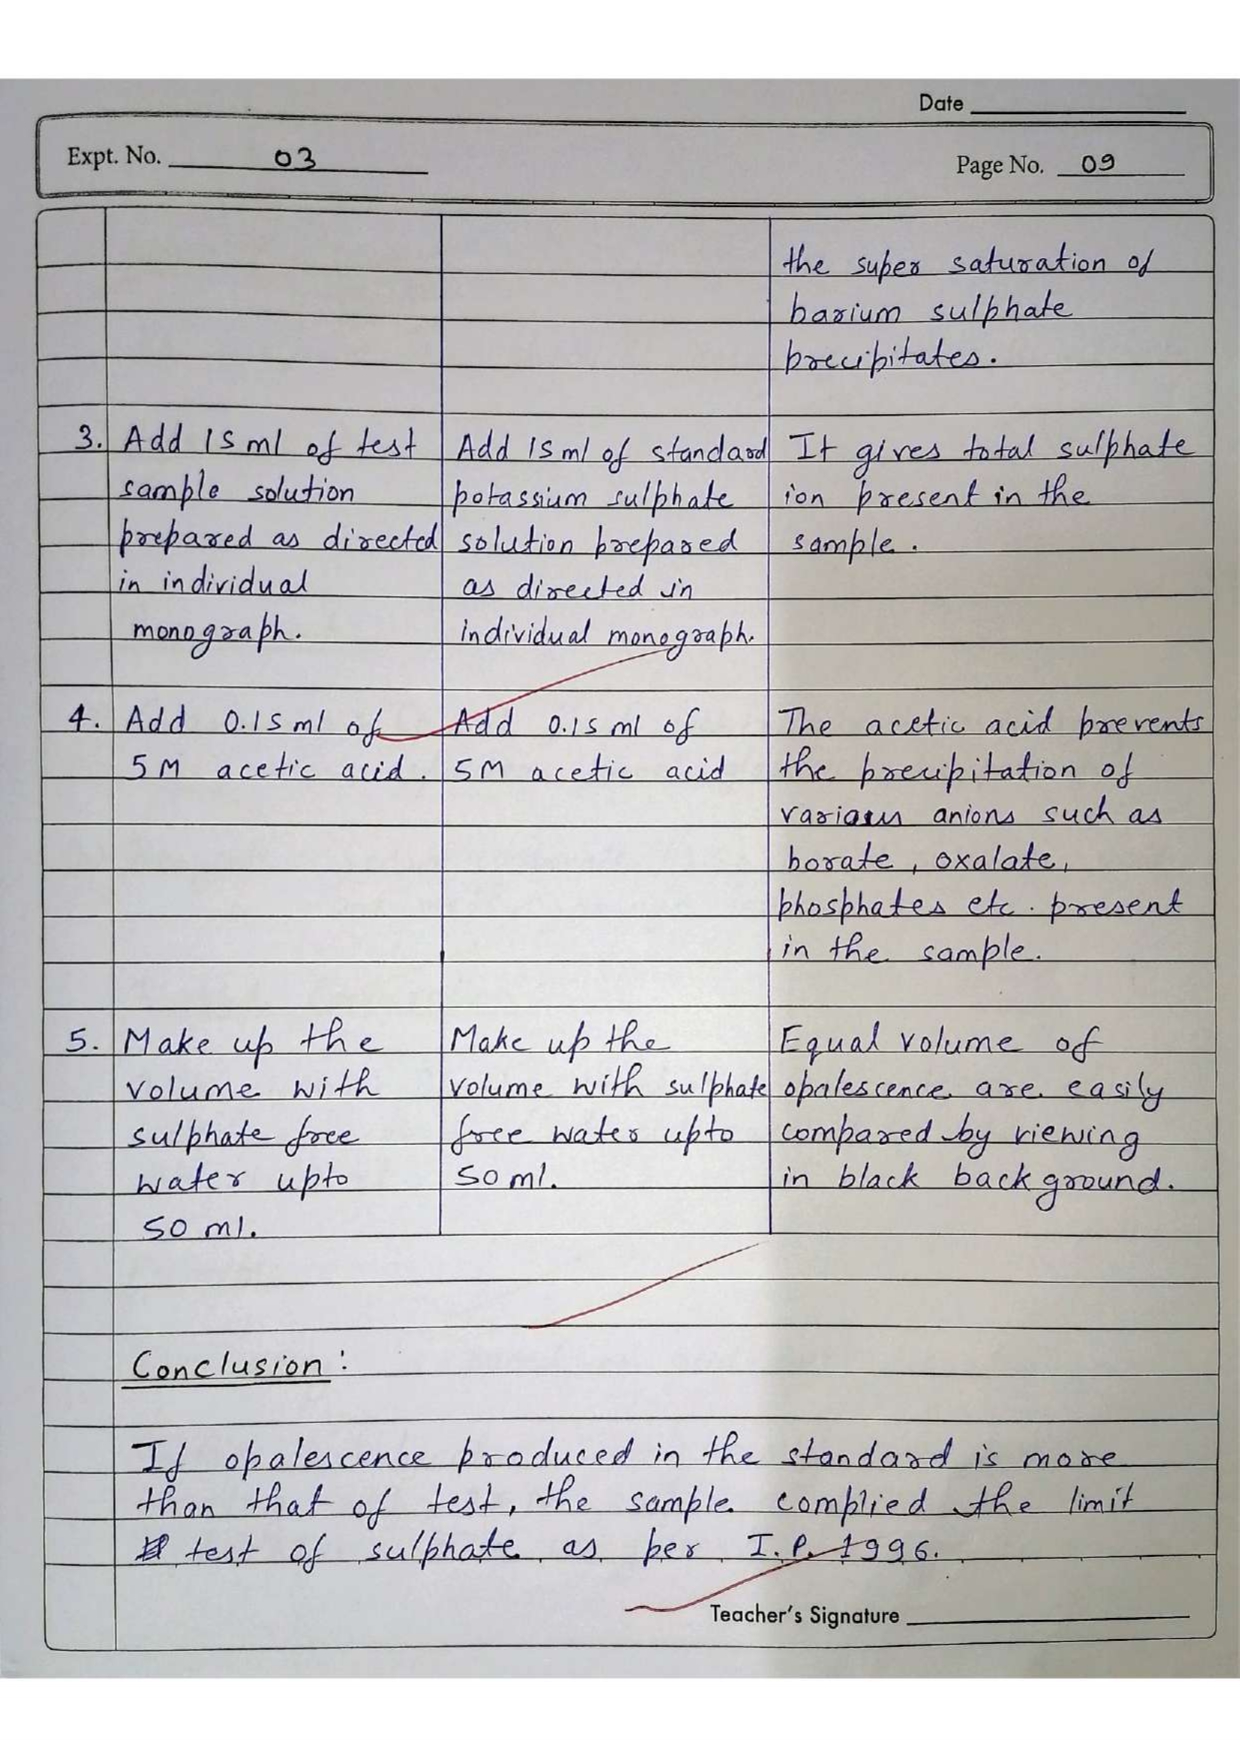 Date
Expt. No. 03
Page No. 09
the super saturation of
barium sulphate
precipitates.
3. Add 15 ml of test
sample solution
prepared as directed
in individual
monograph.
Add 15 ml of standard
potassium sulphate
solution prepared
as directed in
individual monograph.
It gives total sulphate
ion present in the
sample.
4. Add 0.15 ml of
5M acetic acid.
Add 0.15 ml of
5M acetic acid
The acetic acid prevents
the precipitation of
various anions such as
borate, oxalate,
phosphates etc. present
in the sample.
5. Make up the
volume with
sulphate free
water upto
50 ml.
Make up the
volume with sulphate
free water upto
50 ml.
Equal volume of
opalescence are easily
compared by viewing
in black back ground.
Conclusion:
If opalescence produced in the standard is more
than that of test, the sample complied the limit
test of sulphate as per I.P. 1996.
Teacher's Signature